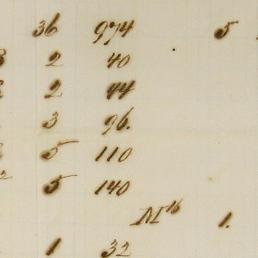 36 974 5
2 40
2 44
3 96.
5 110
5 140
1.
1 32